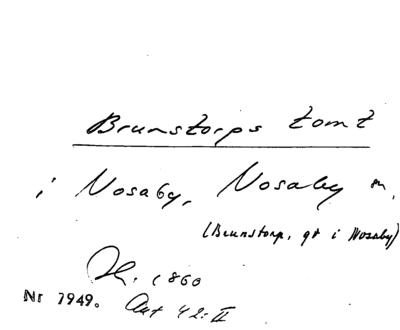 Brunstorps tomt
i Nosaby, Nosaby sn,
(Brunstorp, gd i Nosaby)
1860
Nr 7949. Avt 42: II